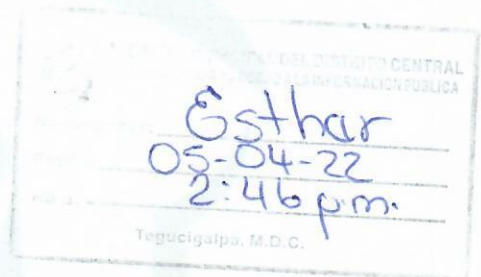 DEL DISTRITO CENTRAL
A LA INFORMACION PUBLICA
Esthar
05-04-22
2:46 p.m.
Tegucigalpa, M.D.C.